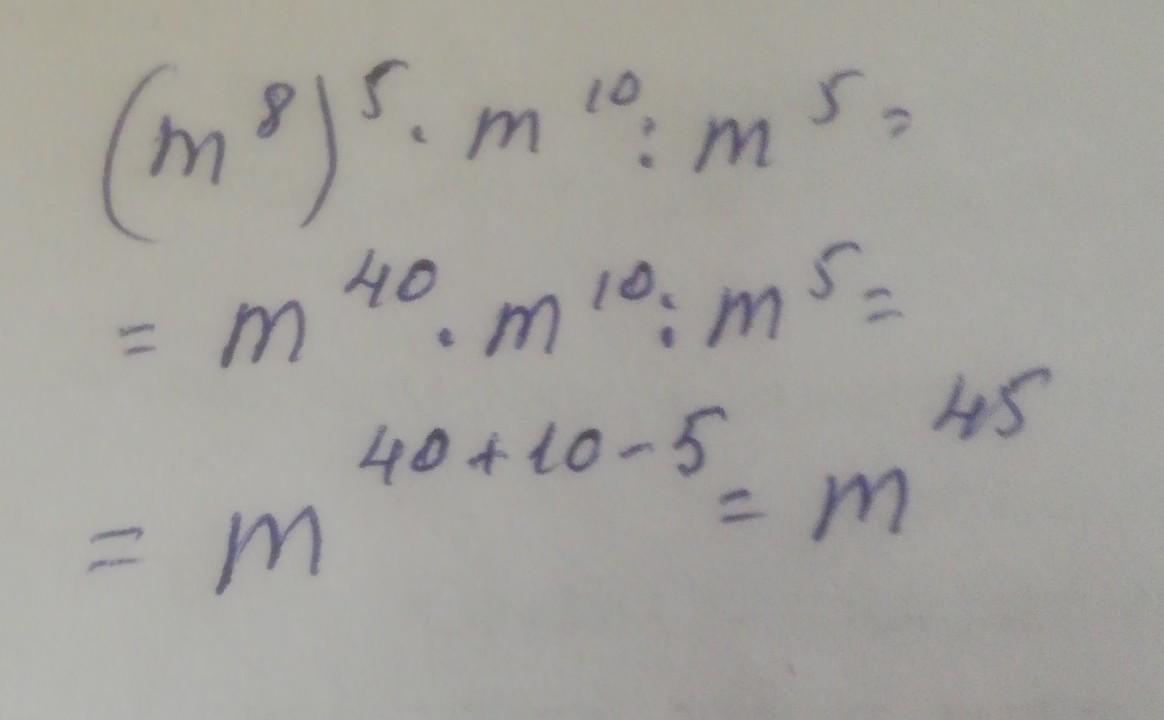 (m⁸)⁵ · m¹⁰ : m⁵ =
= m⁴⁰ · m¹⁰ : m⁵ =
= m⁴⁰⁺¹⁰⁻⁵ = m⁴⁵